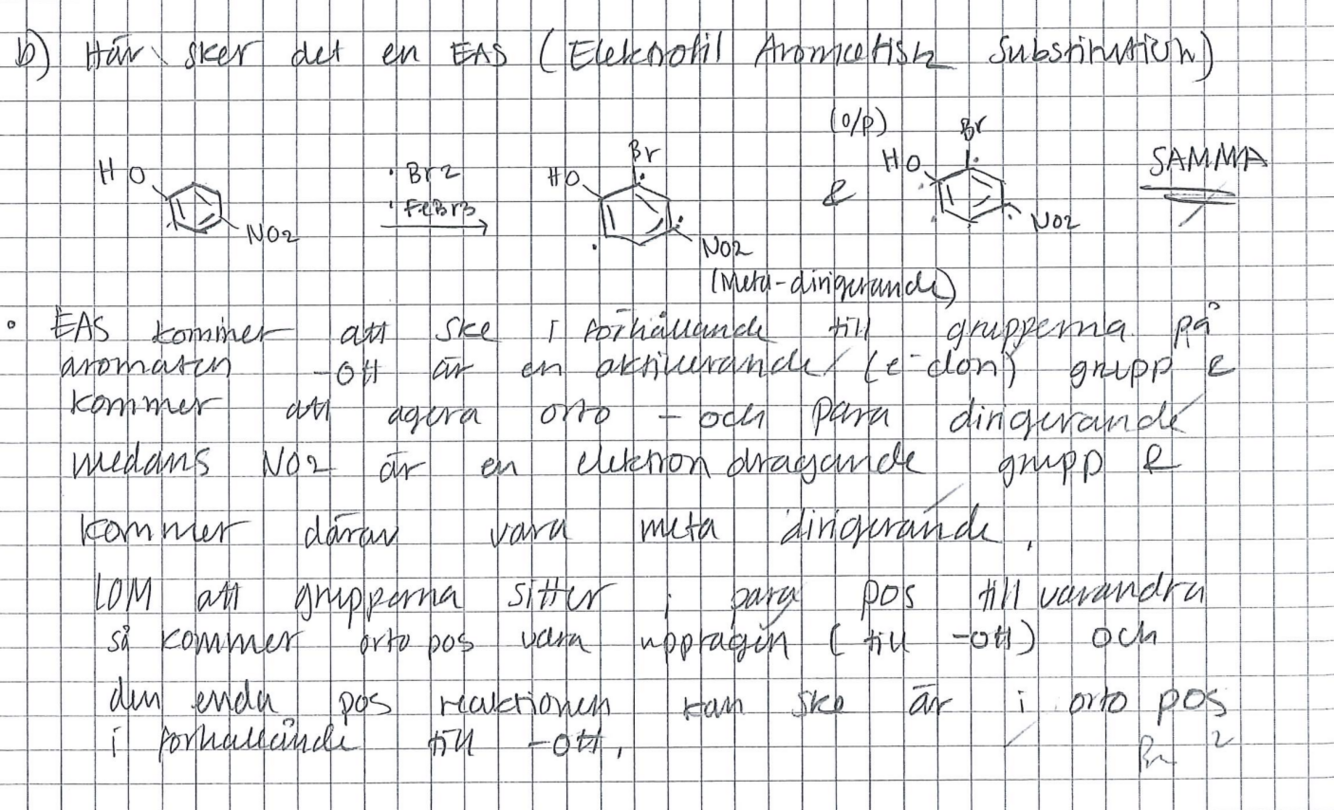 b) Här sker det en EAS (Elektrofil Aromatisk Substitution)
(o/p)
HO NO2 · Br2 · FeBr3 HO Br NO2 & HO Br NO2 SAMMA
(Meta-dirigerande)
• EAS kommer att ske i förhållande till grupperna på
aromaten -OH är en aktiverande/(e-don) grupp &
kommer att agera orto - och para dirigerande
medans NO2 är en elektrondragande grupp &
kommer därav vara meta dirigerande.
IOM att grupperna sitter i para pos till varandra
så kommer orto pos vara upptagen (till -OH) och
den enda pos reaktionen kan ske är i orto pos
i förhållande till -OH.
2